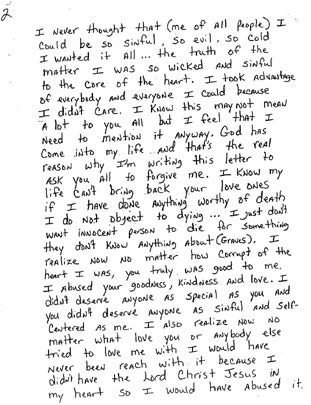 2
I never thought that (me of all people) I
could be so sinful, so evil, so cold
I wanted it all... the truth of the
matter I was so wicked and sinful
to the core of the heart. I took advantage
of everybody and everyone I could because
I didn't care. I know this may not mean
a lot to you all but I feel that I
need to mention it anyway. God has
come into my life and that's the real
reason why I'm writing this letter to
ask you all to forgive me. I know my
life can't bring back your love ones
if I have done anything worthy of death
I do not object to dying... I just don't
want innocent person to die for something
they don't know anything about (Graves). I
realize now no matter how corrupt of the
heart I was, you truly was good to me.
I abused your goodness, kindness and love. I
didn't deserve anyone as special as you and
you didn't deserve anyone as sinful and self-
centered as me. I also realize now no
matter what love you or anybody else
tried to love me with I would have
never been reach with it because I
didn't have the Lord Christ Jesus in
my heart so I would have abused it.